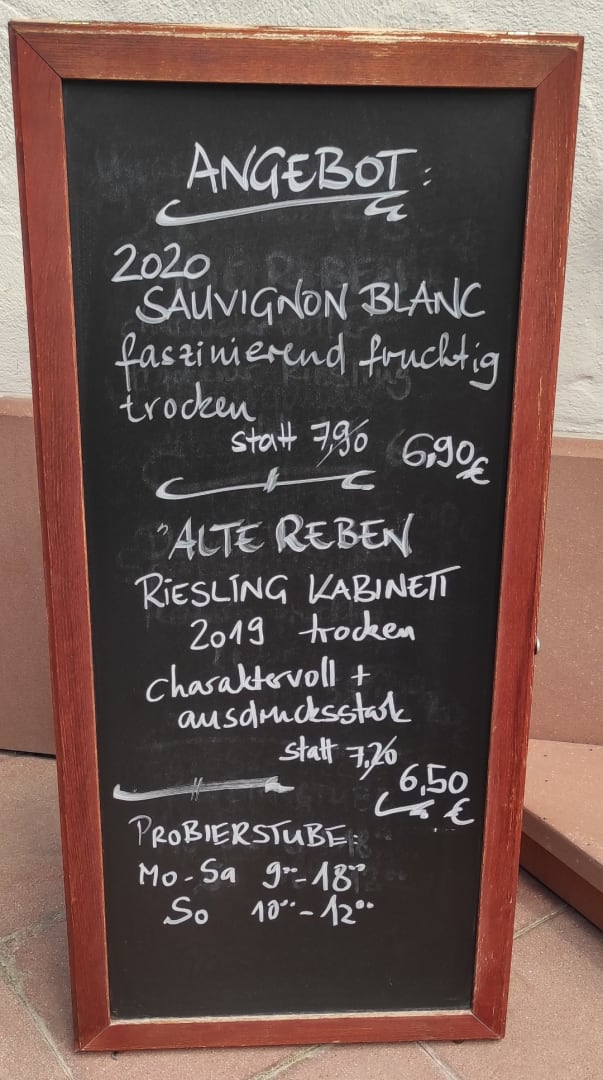 ANGEBOT:
2020
SAUVIGNON BLANC
faszinierend fruchtig
trocken
statt 7,90 6,90 €
"ALTE REBEN
RIESLING KABINETT
2019 trocken
charaktervoll +
ausdrucksstark
statt 7,20
6,50 €
PROBIERSTUBE:
Mo - Sa 9⁰⁰ - 18⁰⁰
So 10⁰⁰ - 12⁰⁰